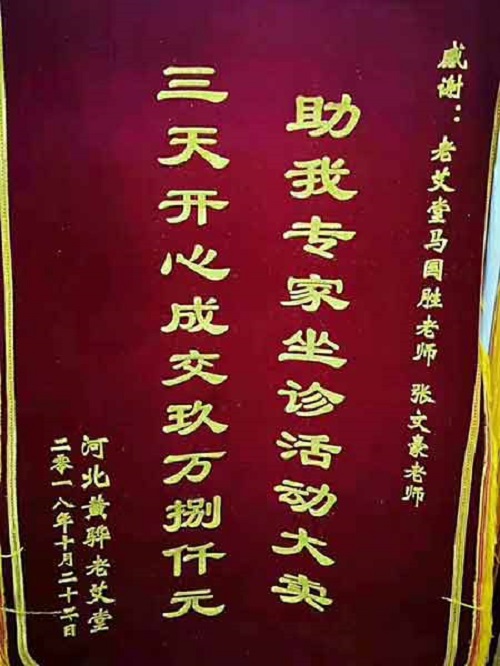 感谢：老艾堂马国胜老师 张文豪老师
助我专家坐诊活动大卖
三天开心成交玖万捌仟元
河北黄骅老艾堂
二零一八年十月二十二日